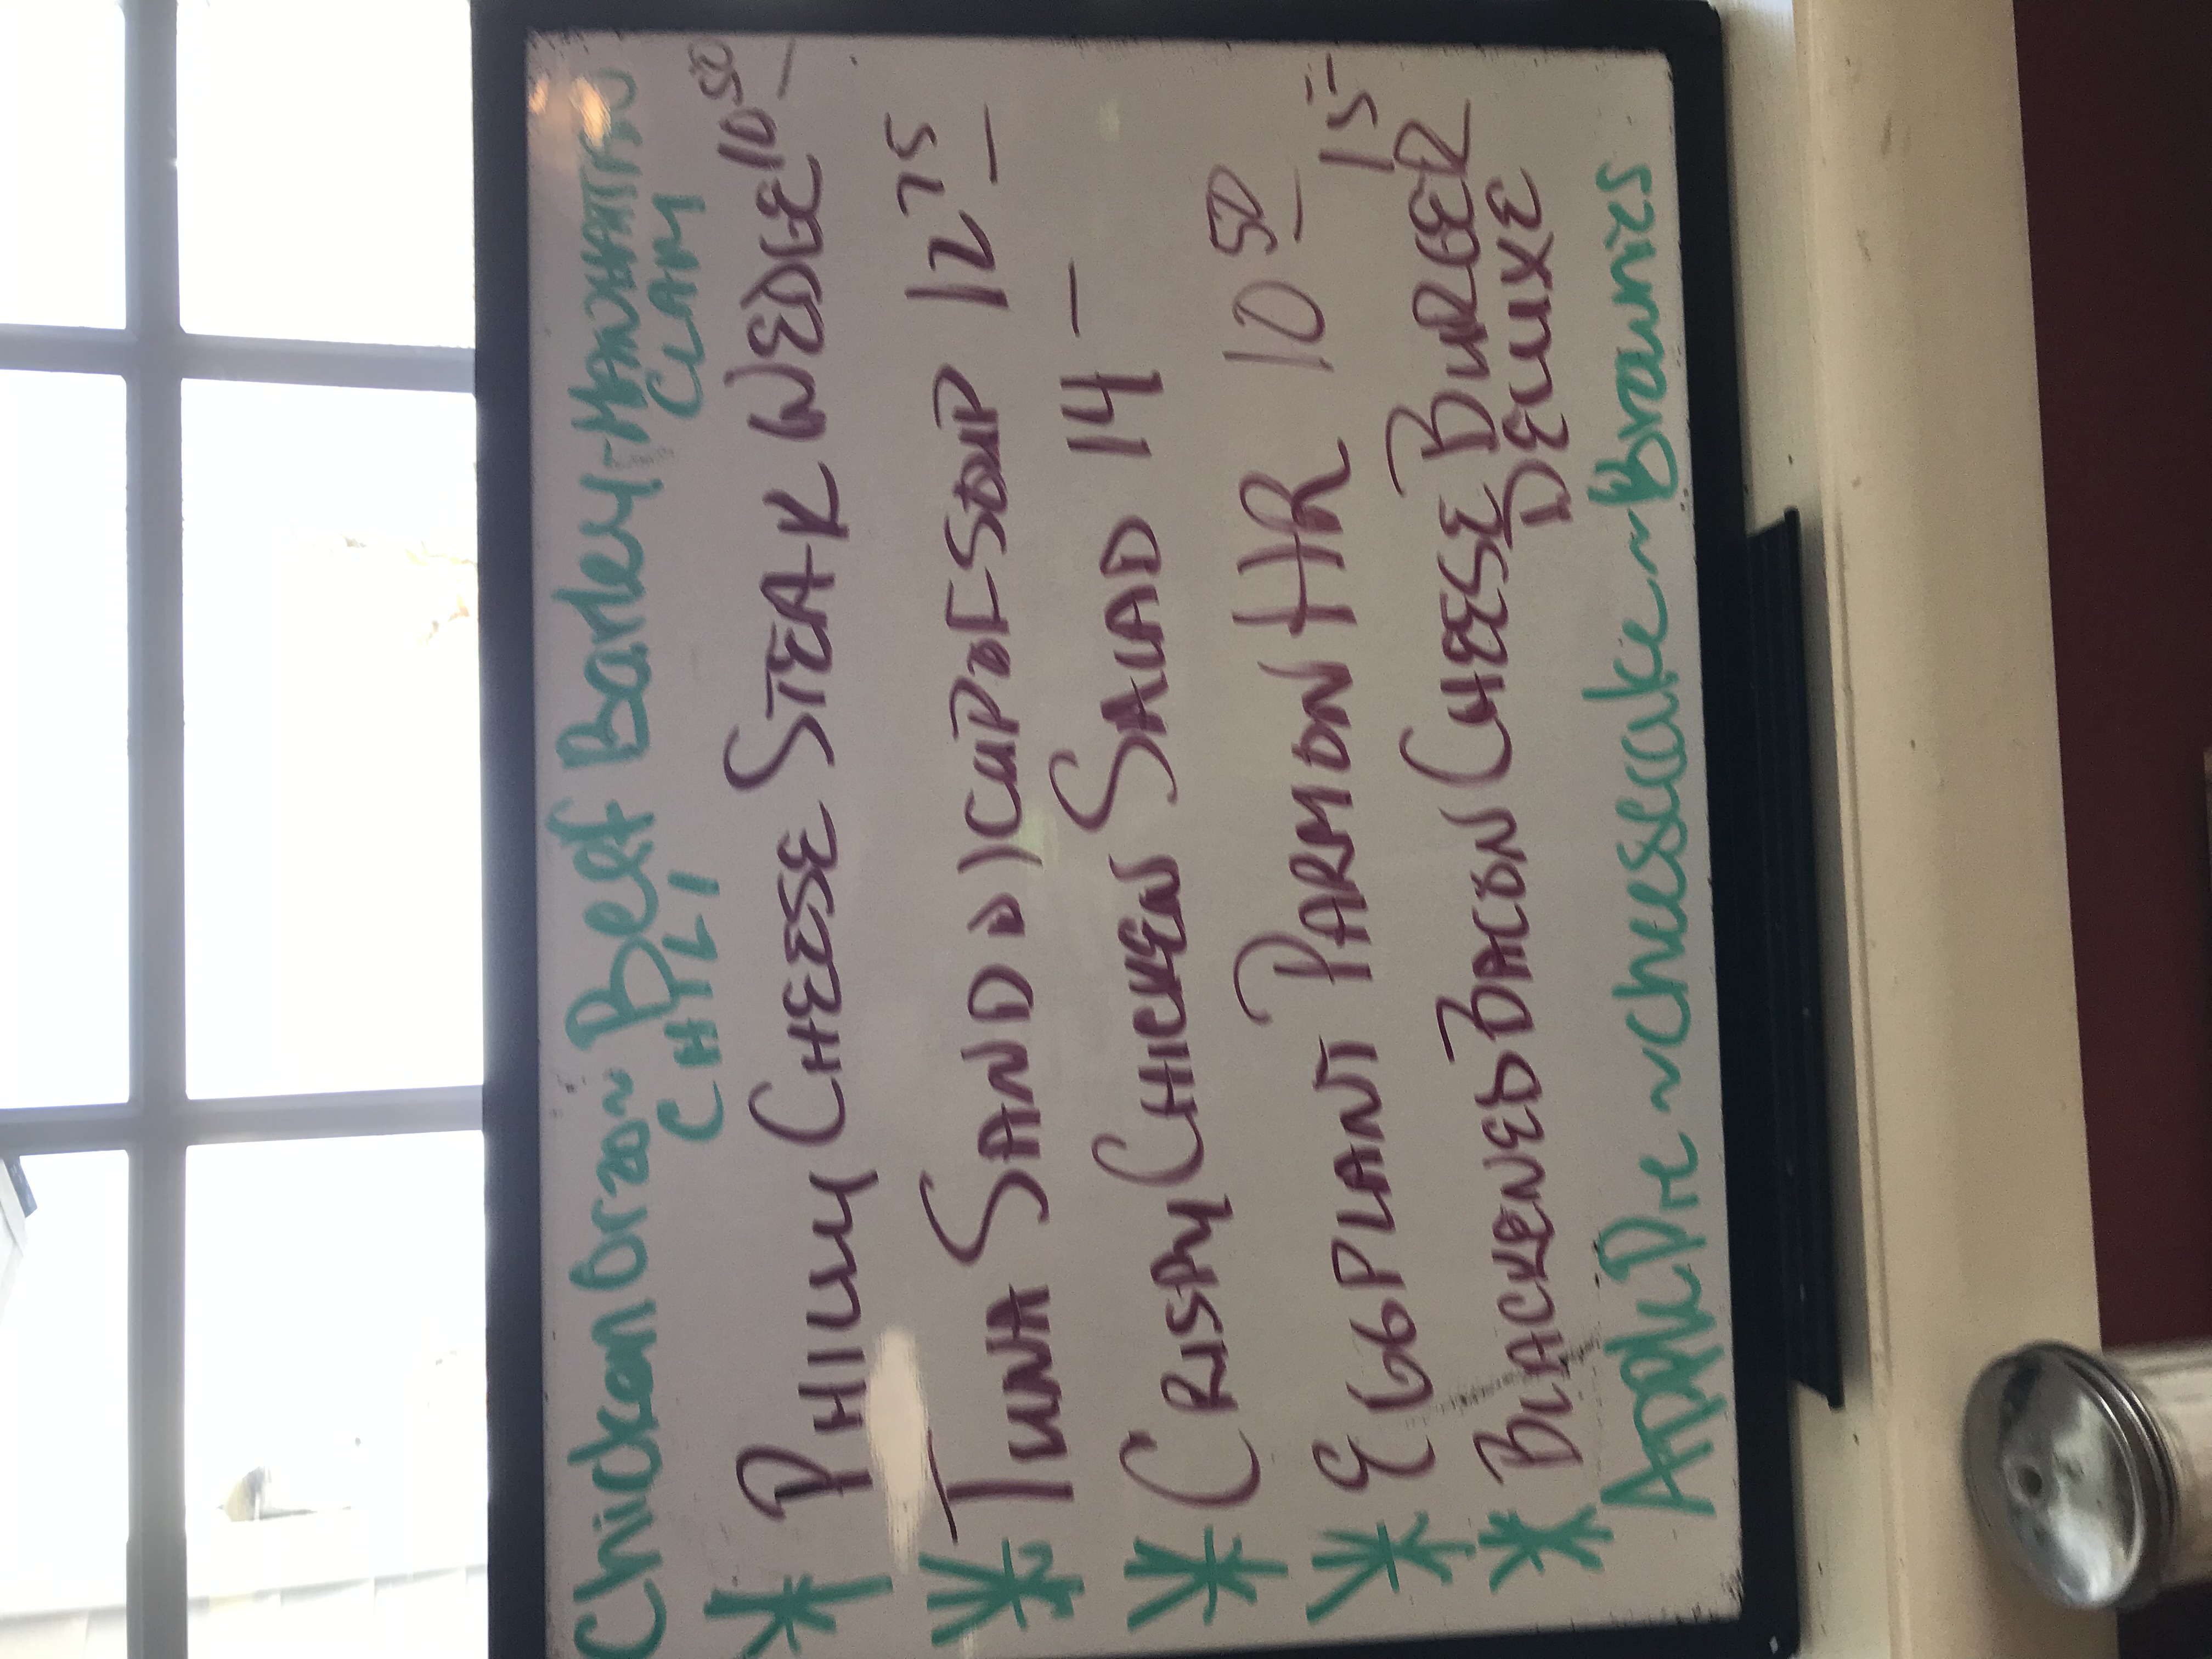 Chicken Orzo ~ Beef Barley - MANHATTAN
CHILI CLAM
* PHILLY CHEESE STEAK WEDGE 10 50
* TUNA SAND W/CUP OF SOUP 12 75
* CRISPY CHICKEN SALAD 14 -
* EGGPLANT PARM ON HR 10 50
* BLACKENED BACON CHEESE BURGER 15 -
DELUXE
Apple Pie ~ Cheesecake ~ Brownies